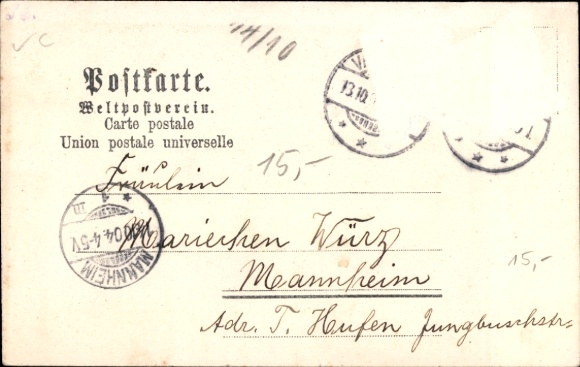 14/10
Postkarte.
Weltpostverein.
Carte postale
Union postale universelle
13.10
15,-
Fräulein
Mariechen Würz
Mannheim
15,-
Adr. T. Hufen Jungbuschstr.
MANNHEIM
04.4-5V
1
III